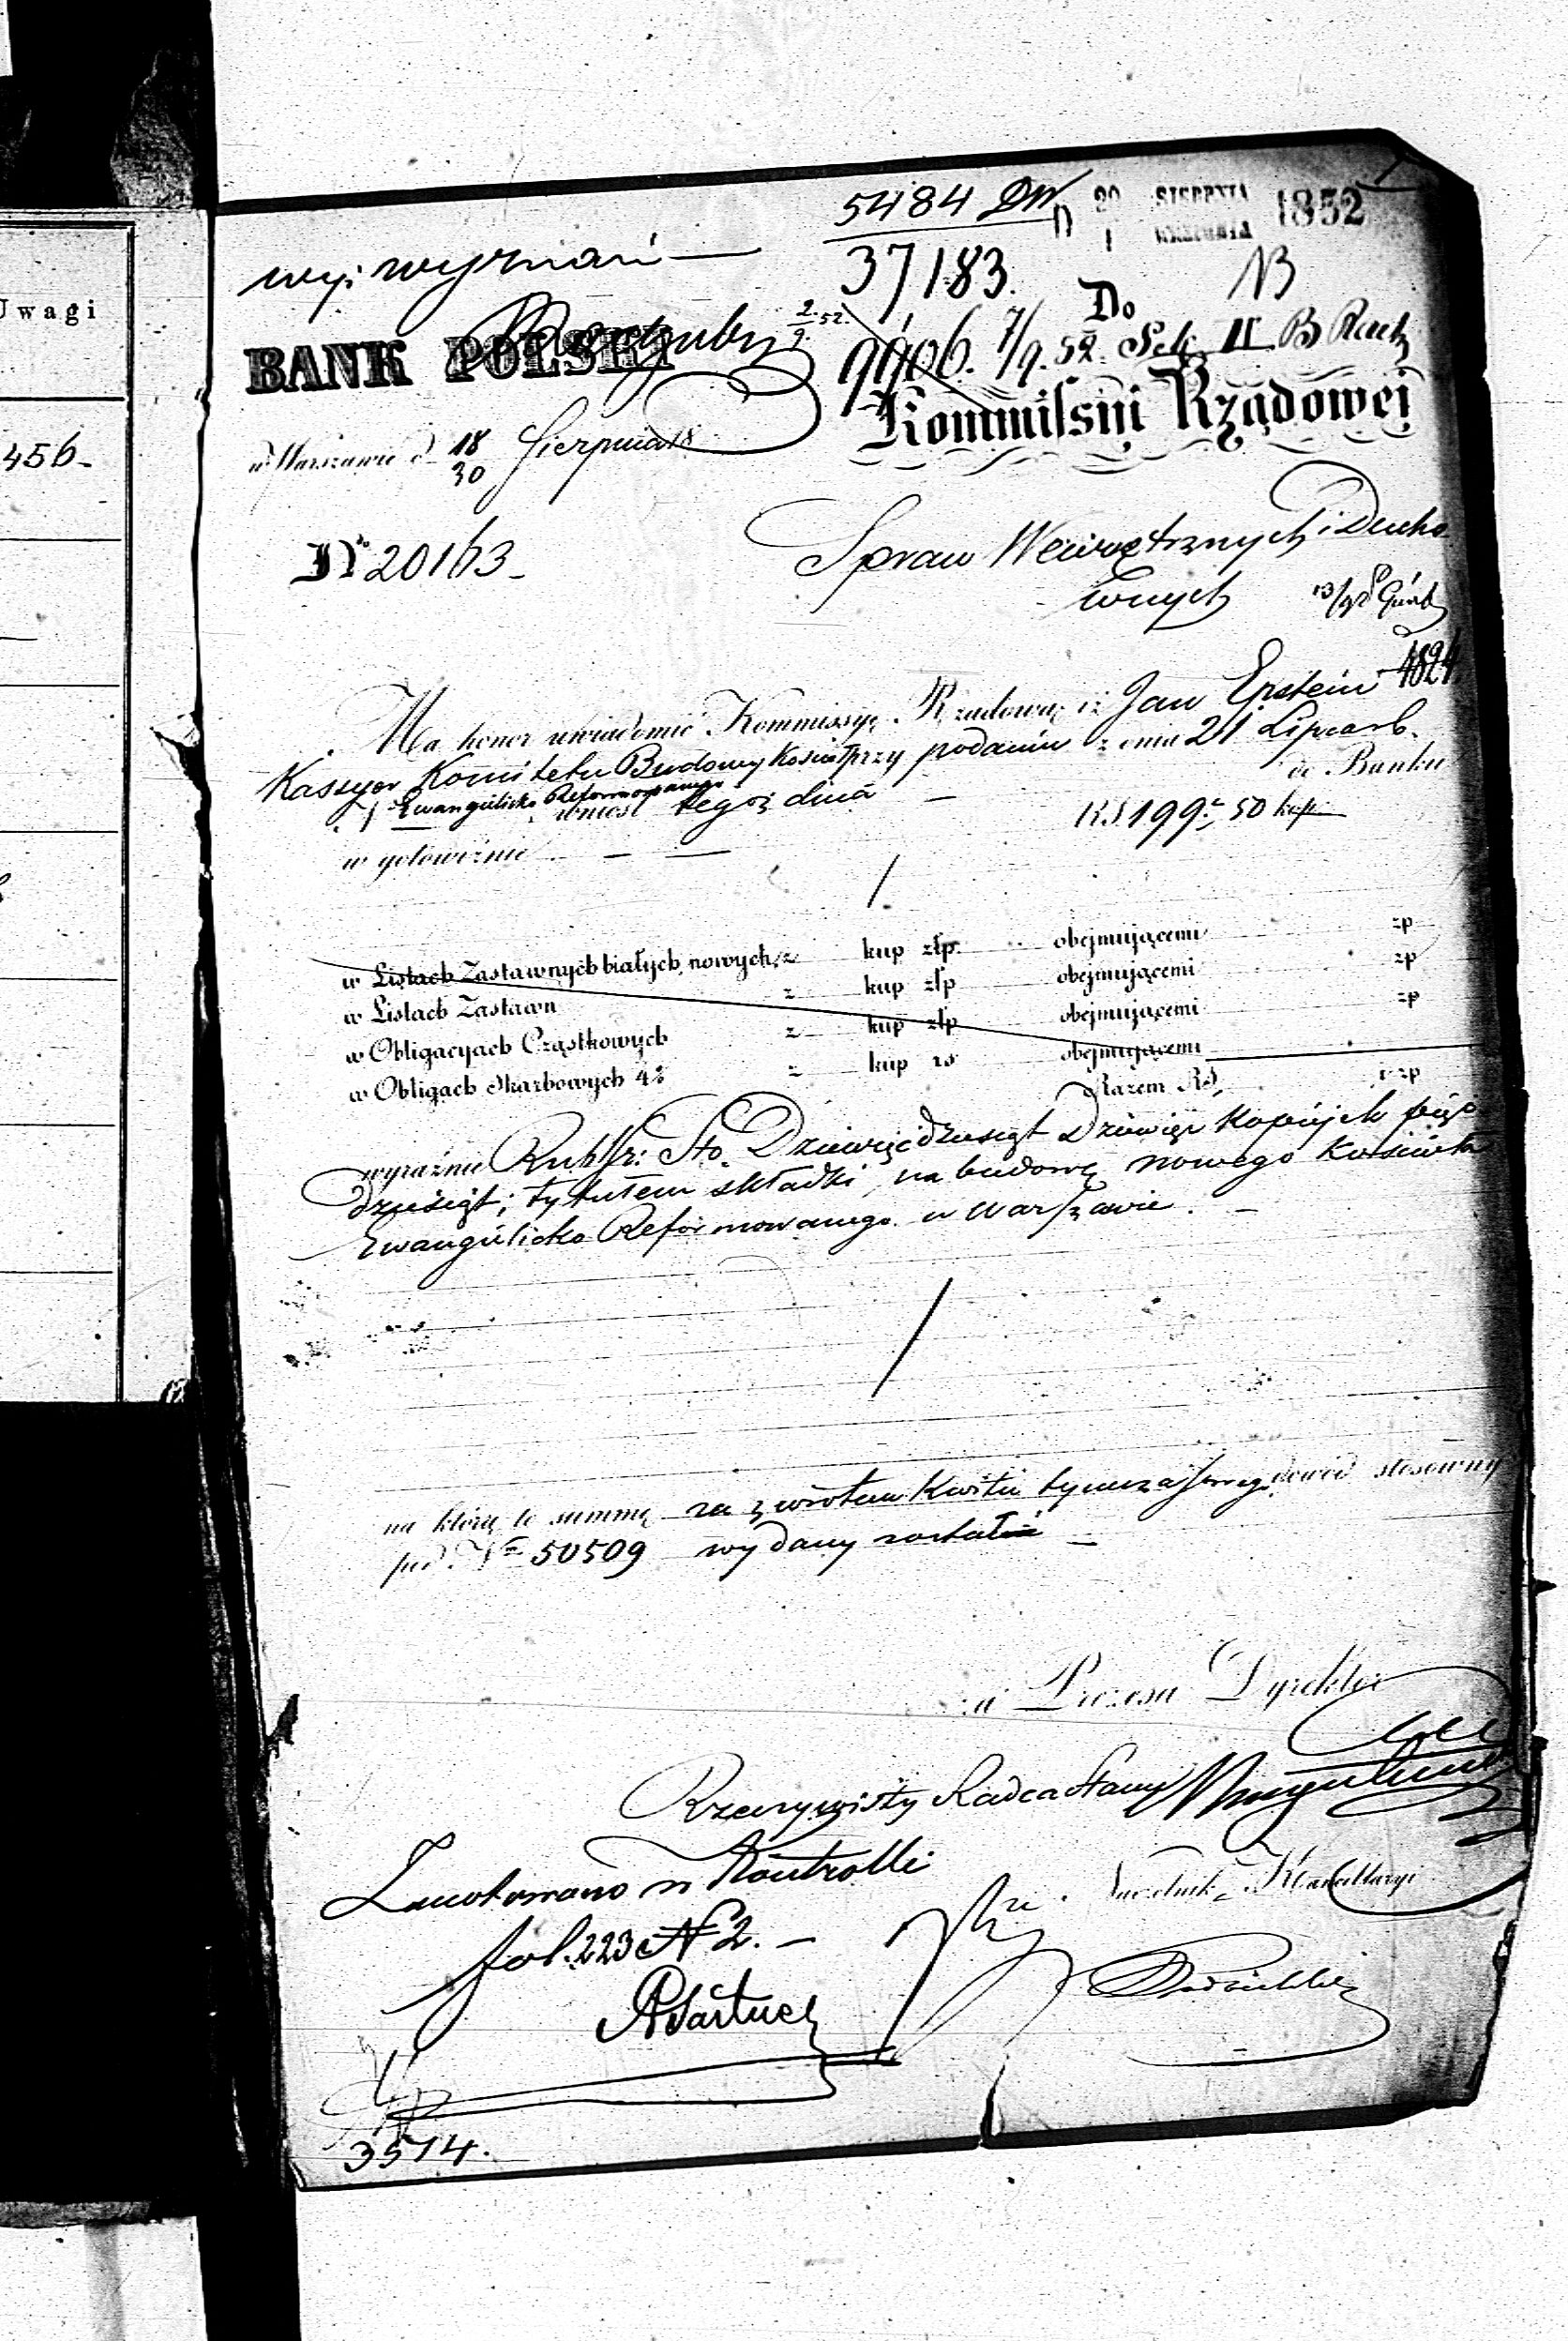 Uwagi
456-
5484 DW
D 20 SIERPNIA 1852
1 WRZEŚNIA
37183.
Do
BANK POLSKI
2/9 52.
9906. 7/9. 52. Sek II B Rach
Kommissyi Rządowej
w Warszawie d. 18/30 Sierpnia 18
Spraw Wewnętrznych i Ducho
No 20163-
wnych
1824.
Ma honor uwiadomić Kommissyę Rządową iż Jan Epstein
Kassyer Komitetu Budowy Kościoła przy podaniu z dnia 21 Lipca r.b.
Ewangelicko Reformowanego
wniósł tegoż dnia - do Banku
w gotowiźnie - - RS. 199 „ 50 kop
w Listach Zastawnych białych nowych z kup złp. obejmującemi zp
w Listach Zastawn z kup złp obejmującemi zp
w Obligacyach Cząstkowych z kup złp obejmującemi zp
w Obligach Skarbowych 4% z kup rs obejmującemi
Razem RS. zp
wyraźnie Rub Sr: Sto Dziewięćdziesiąt Dziewięć Kopiejek pięć
dziesiąt; tytułem składki na budowę nowego Kościoła
Ewangielicko Reformowanego w Warszawie. -
na którą to summę za zwrotem Kwitu tymczasowego dowód stosowny
pod No 50509 wydany został -
za Prezesa Dyrektor
Rzeczywisty Radca Stanu
Zanotowano w Kontrolli
Naczelnik Kancellaryi
fol. 223 N 2. -
3514.